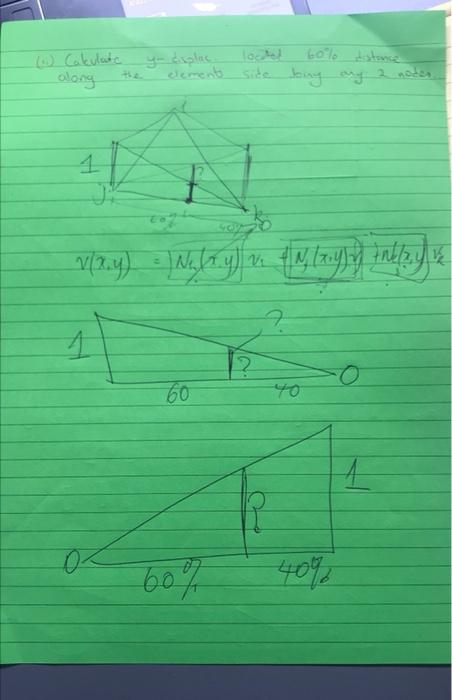 (ii) Calculate y-displac. located 60% distance
along the elements side joing any 2 nodes.
i
1
?
j
k
60%
40%
0
v(x,y) = N_i(x,y) v_i + N_j(x,y) v_j + N_k(x,y) v_k
?
1
?
0
60 40
1
?
0
60% 40%